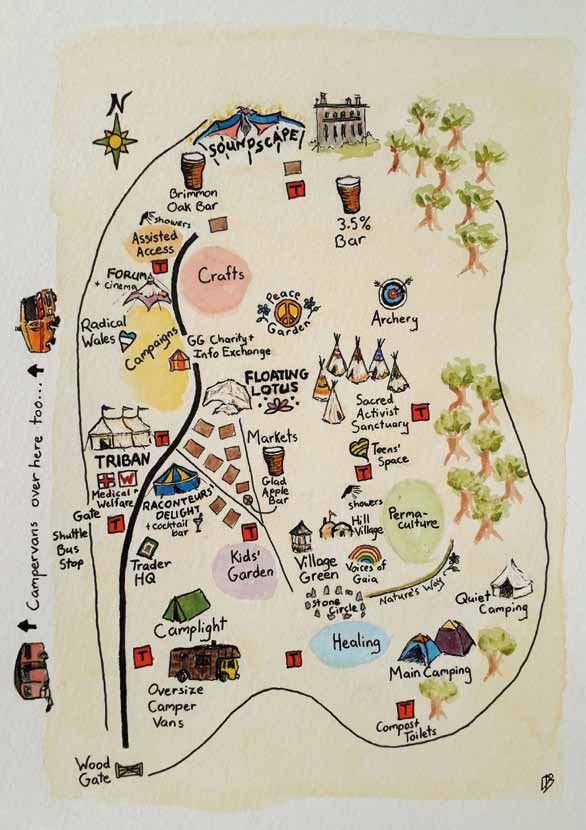 N
SOUNDSCAPE
Brimmon
Oak Bar
T
3.5%
Bar
showers
Assisted
Access
T
FORUM
+ cinema
Crafts
Peace
Garden
Archery
Radical
Wales
Campaigns
GG Charity +
Info Exchange
FLOATING
LOTUS
Sacred
Activist
Sanctuary
T
TRIBAN
T
Markets
Teens'
Space
T
Glad
Apple
Bar
W
Medical +
Welfare
RACONTEURS'
DELIGHT
+ cocktail
bar
showers
Hill
Village
Perma-
culture
Gate
T
Shuttle
Bus
Stop
T
Trader
HQ
Kids'
Garden
Village
Green
Voices of
Gaia
Nature's Way
Stone
Circle
Quiet
Camping
Camplight
Healing
Main Camping
T
Oversize
Camper
Vans
T
T
Compost
Toilets
Wood
Gate
Campervans over here too...